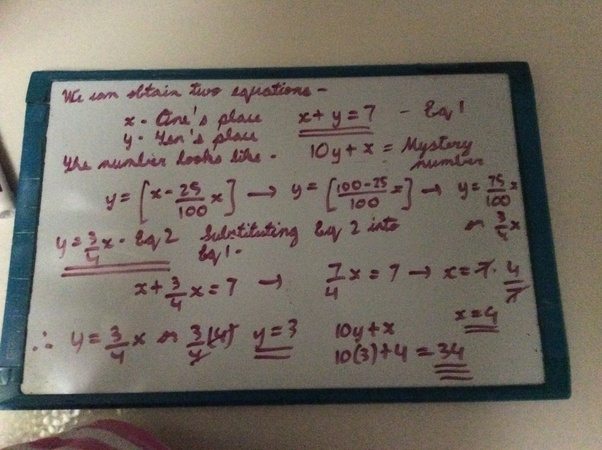 We can obtain two equations -
x - One's place x + y = 7 - Eq 1
y - Ten's place
The number looks like - 10y + x = Mystery number
y = [x - 25/100 x] → y = [100 - 25/100 x] → y = 75/100 x
or 3/4 x
y = 3/4 x - Eq 2 Substituting Eq 2 into
Eq 1 -
x + 3/4 x = 7 → 7/4 x = 7 → x = 7 · 4/7
x = 4
∴ y = 3/4 x or 3/4 (4) y = 3 10y + x
10(3) + 4 = 34